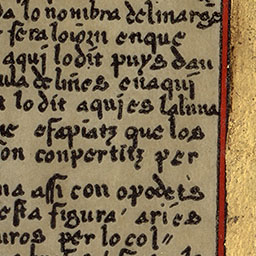 da lo nombra del mar ge
sera lo iom en que
aqui lo dit puys dau
ula de lines en aqui
lo dit aqui es la luna
ne e sapiatz que los
on conpertitz per
na assi con o podets
esta figura · aries
uros per lo col〃